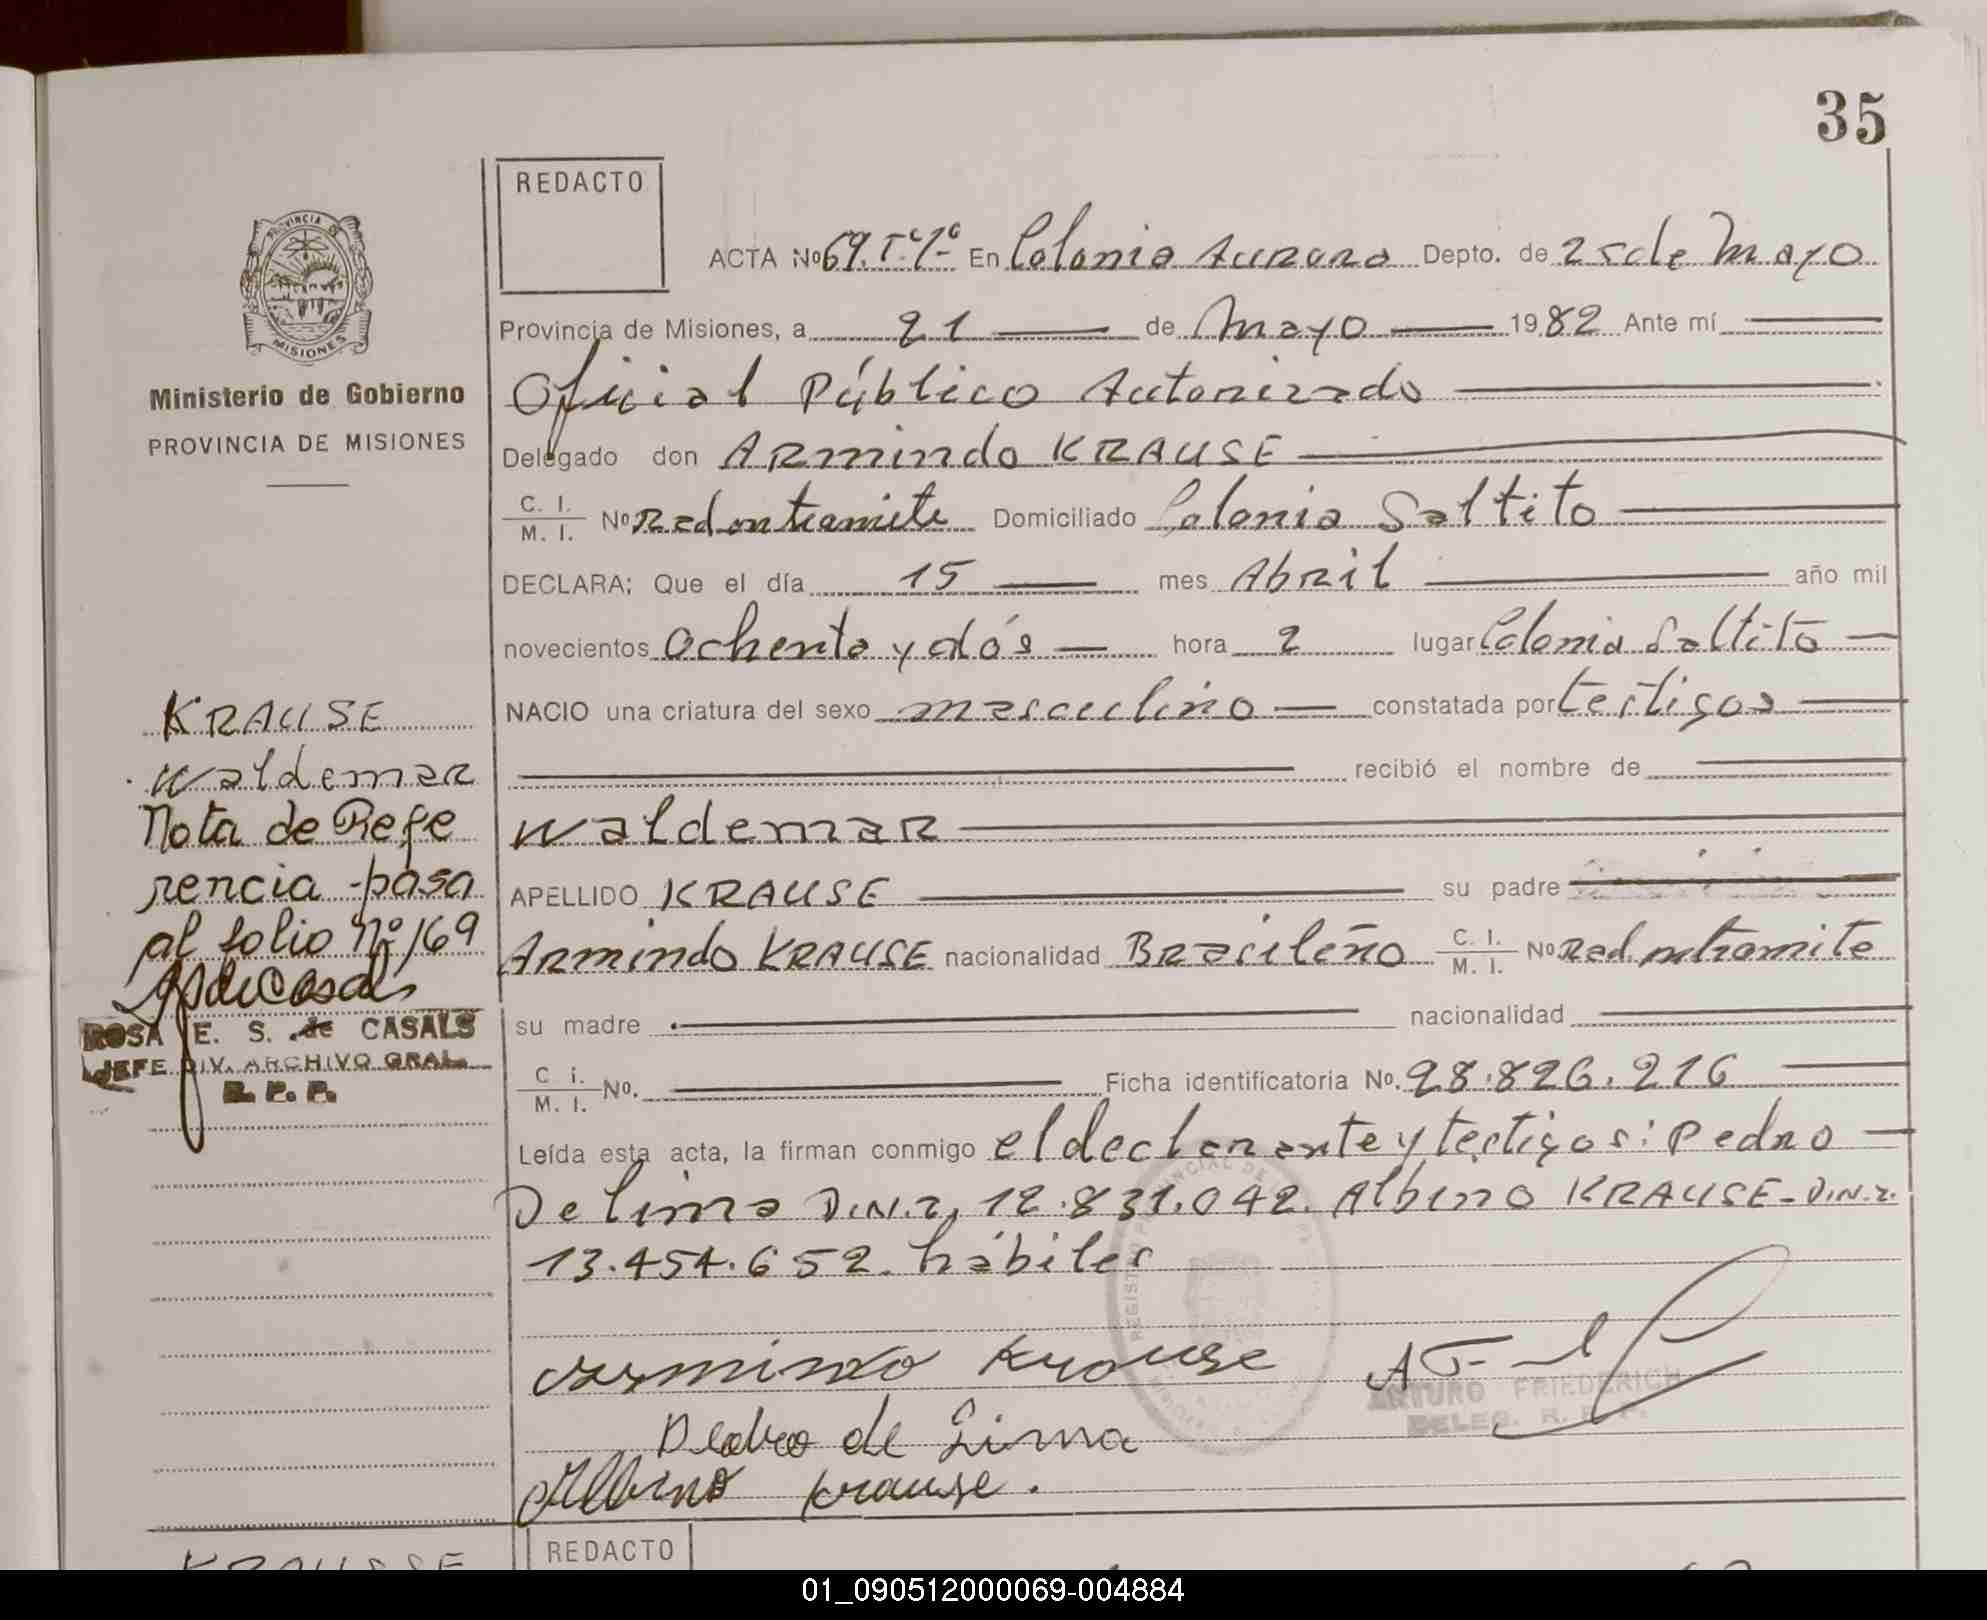 35
REDACTO
PROVINCIA DE
MISIONES
Ministerio de Gobierno
PROVINCIA DE MISIONES
ACTA Nº 69. Tº 1º En Colonia Aurora Depto. de 25 de Mayo
Provincia de Misiones, a 21 de Mayo 1982 Ante mí
Oficial Público Autorizado
Delegado don Armindo KRAUSE
C. I. / M. I. Nº Rad. en tramite Domiciliado Colonia Saltito
DECLARA: Que el día 15 mes Abril año mil
novecientos Ochenta y dós hora 2 lugar Colonia Saltito
NACIO una criatura del sexo masculino constatada por testigos
recibió el nombre de
Waldemar
APELLIDO KRAUSE su padre
Armindo KRAUSE nacionalidad Brasileño C. I. / M. I. Nº Rad. en tramite
su madre nacionalidad
C i. / M. I. No. Ficha identificatoria No. 28.826.216
Leída esta acta, la firman conmigo el declarante y testigos: Pedro
De lima D.N.I. 12.831.042. Albino KRAUSE- D.N.I.
13.454.652. hábiles
Armindo Krause
Pedro de Lima
Albino Krause.
ARTURO FRIEDERICH
DELEG. R. P. P.
KRAUSE
Waldemar
Nota de Refe
rencia - pasa
al folio Nº 169
ROSA E. S. de CASALS
JEFE DIV. ARCHIVO GRAL.
R. P. P.
KRAUSSE
REDACTO
01_090512000069-004884